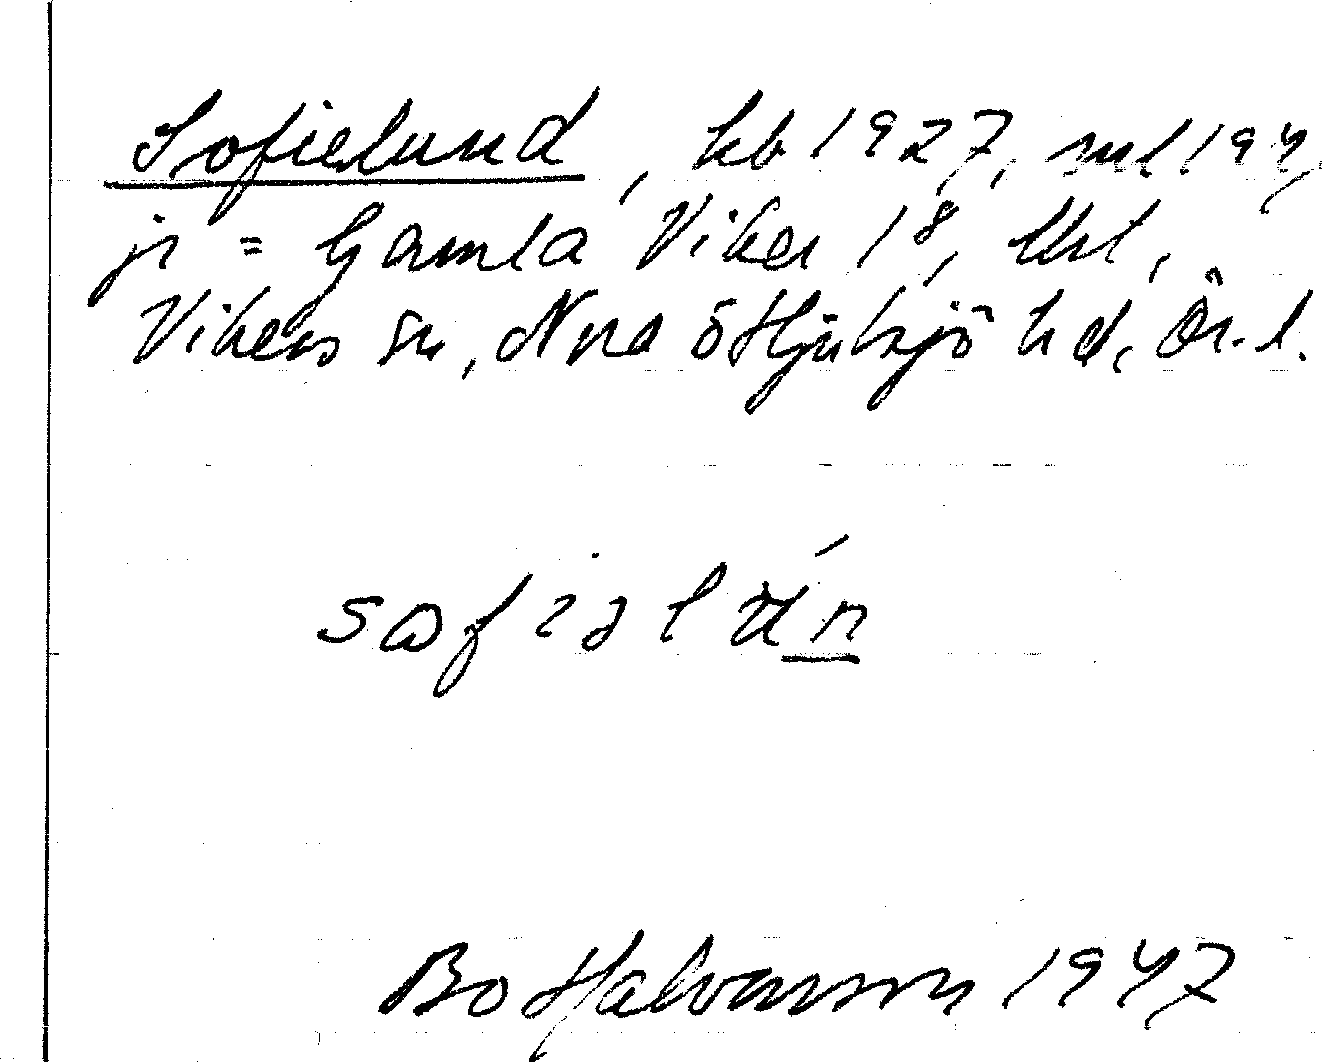 Sofielund, kb 1927, ml 194
jr = Gamla Viker 1⁸, Ukl,
Vikers sn, Nora o Hjulsjö hd, Ör. l.
sofiəlún
Bo Halvarsson 1947